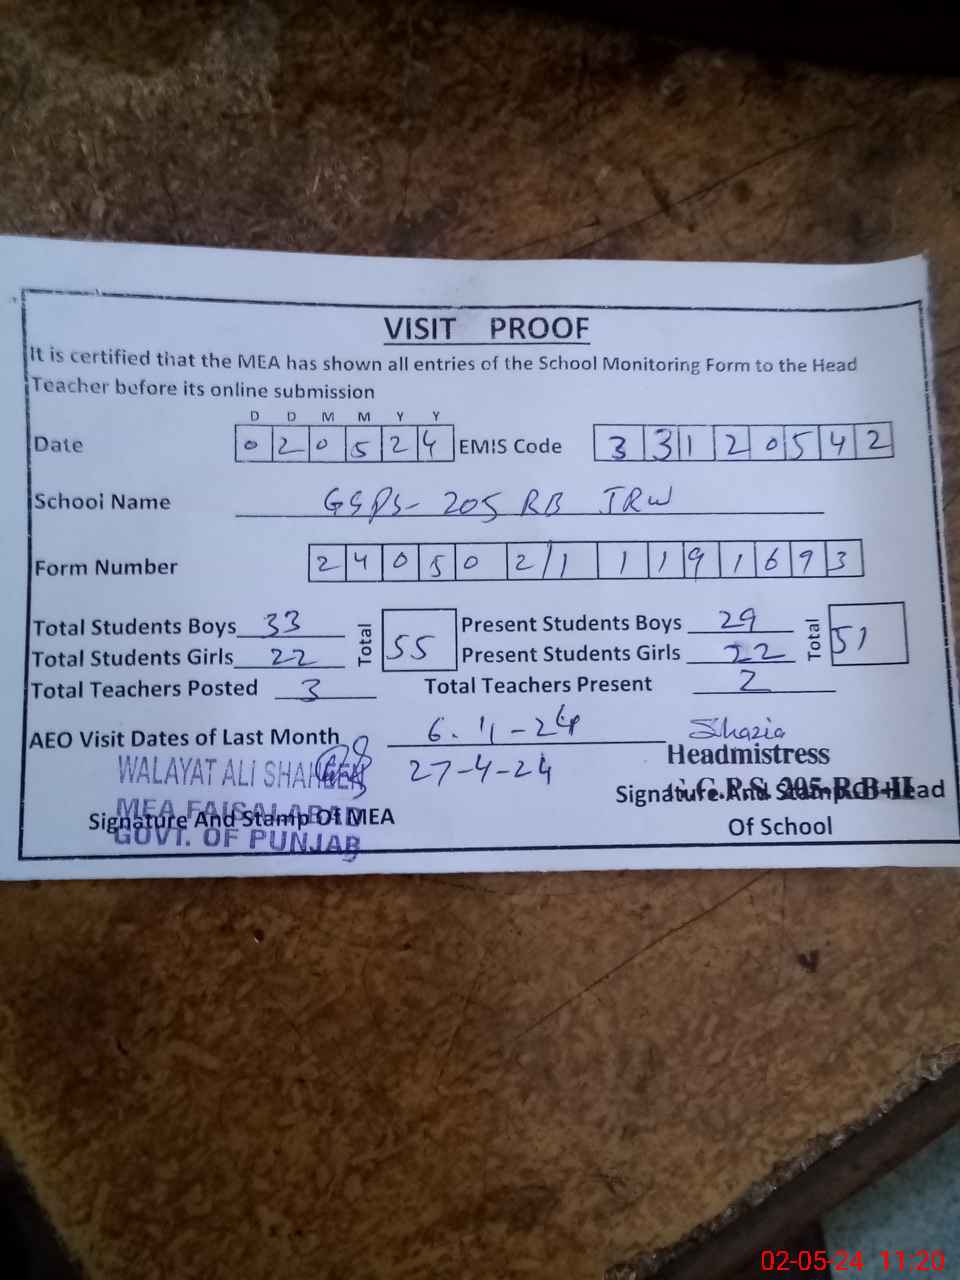 VISIT PROOF
It is certified that the MEA has shown all entries of the School Monitoring Form to the Head
Teacher before its online submission
D D M M Y Y
Date 0 2 0 5 2 4 EMIS Code 3 3 1 2 0 5 4 2
School Name GSPS- 205 RB JRW
Form Number 2 4 0 5 0 2/1 1 1 9 1 6 9 3
Total Students Boys 33 Total 55 Present Students Boys 29 Total 51
Total Students Girls 22 Present Students Girls 22
Total Teachers Posted 3 Total Teachers Present 2
AEO Visit Dates of Last Month 6-4-24 Shazia
27-4-24 Headmistress
WALAYAT ALI SHAHEEN
MEA FAISALABAD
GOVT. OF PUNJAB
Signature And Stamp Of MEA
Signature And Stamp Of Head
Of School
02-05-24 11:20